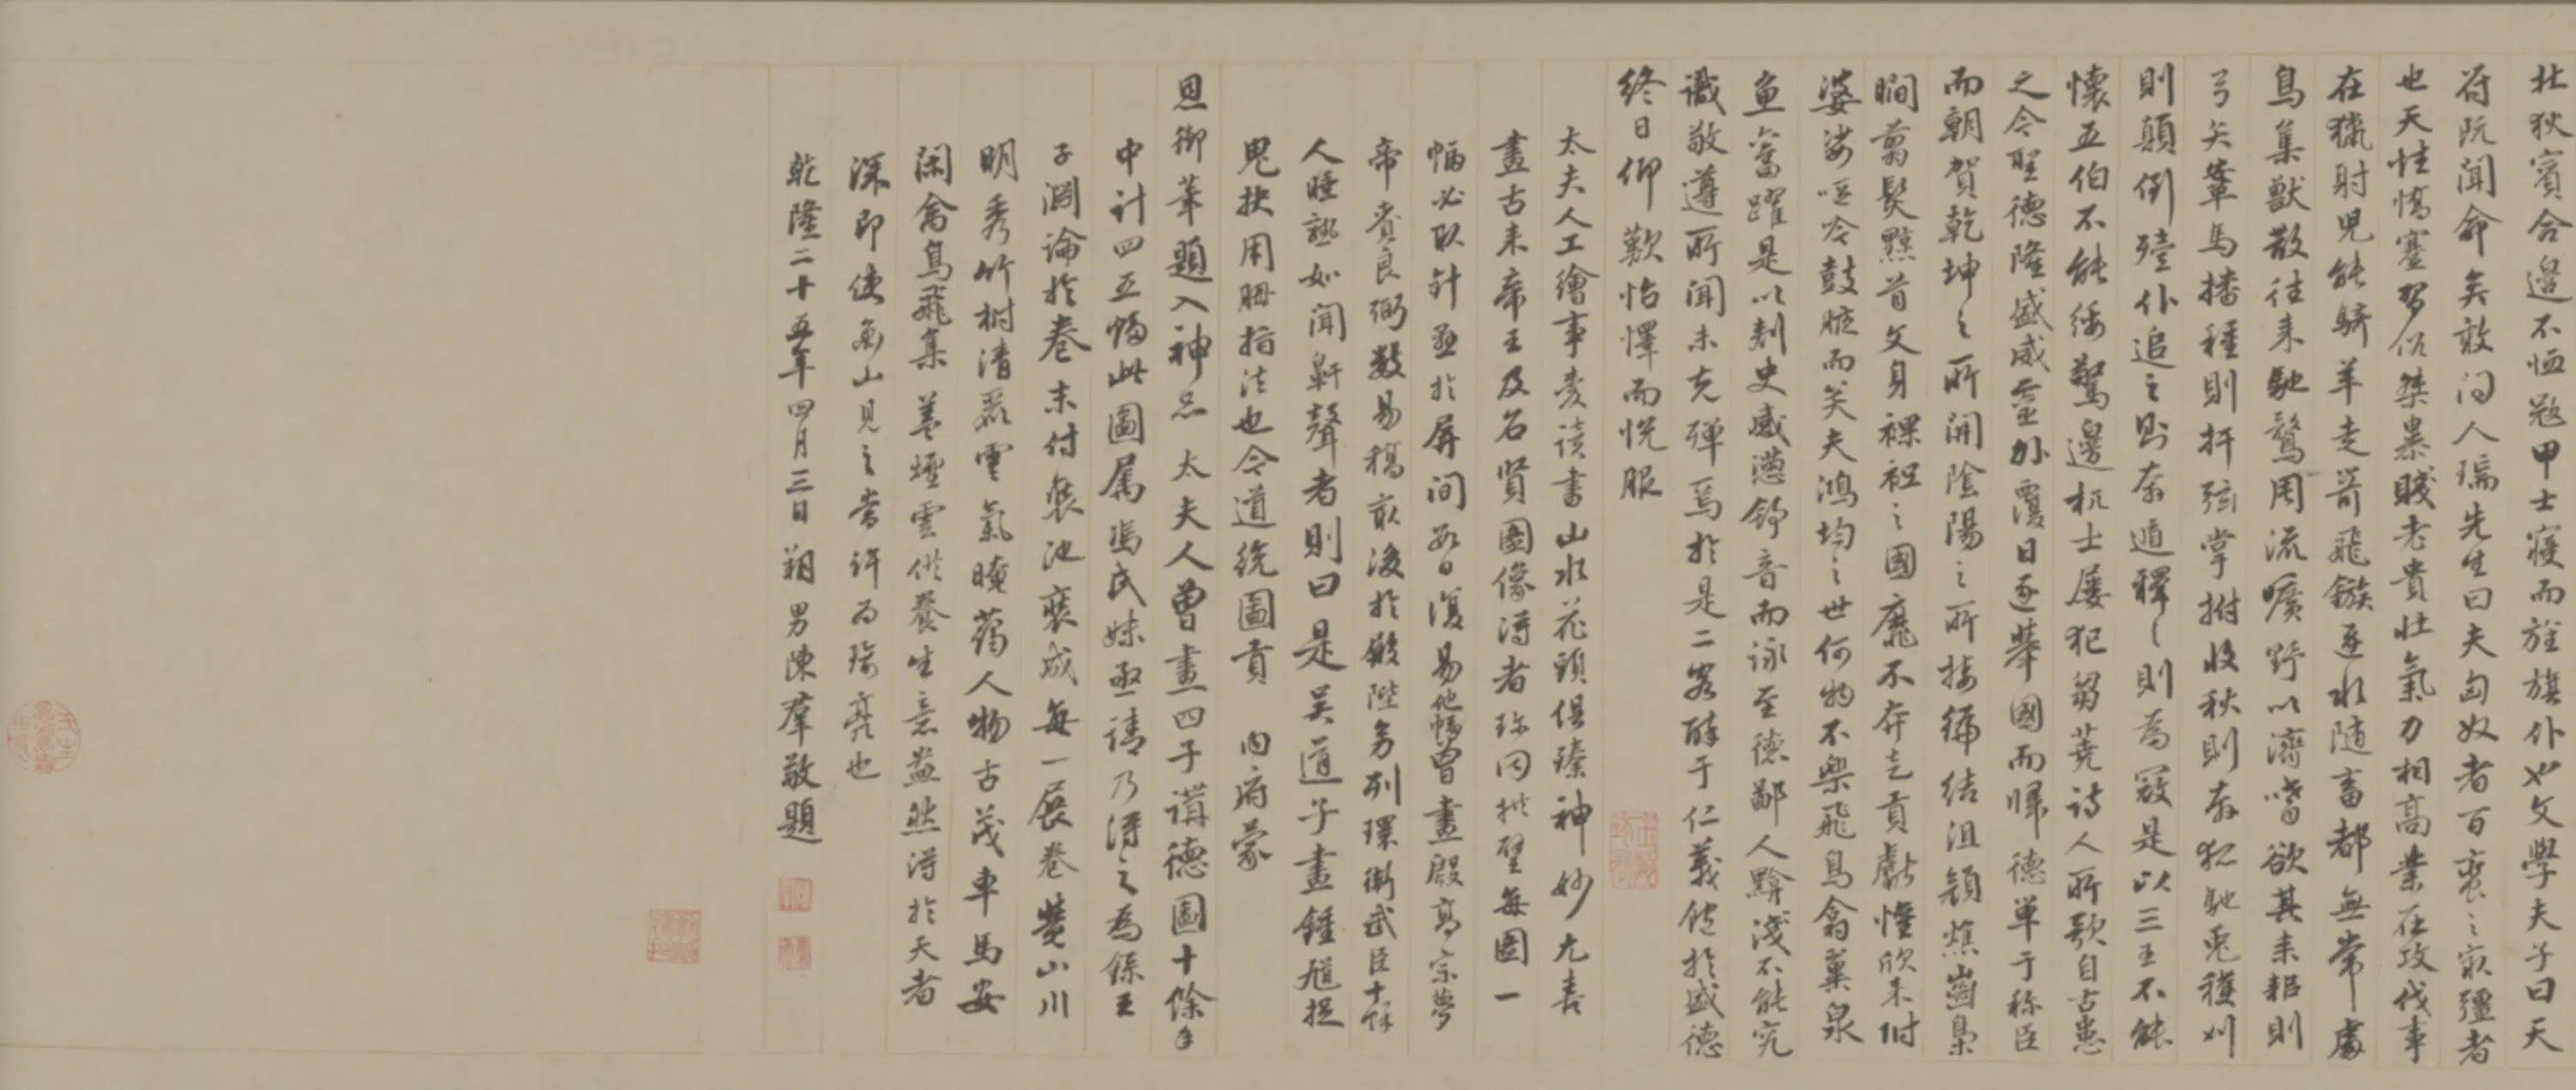 北狄賓合邊不恤寇甲士寢而旌旗仆也文學夫子曰天
符既聞命矣敢問人瑞先生曰夫匈奴者百蠻之最彊者
也天性憍蹇習俗桀暴賤老貴壯氣力相高業在攻伐事
在獵射兒能騎羊走箭飛鏃逐水隨畜都無常處
鳥集獸散往來馳騖周流曠野以濟嗜欲其耒耜則
弓矢鞌馬播種則扞弦掌拊收秋則奔狐馳兎穫刈
則顛倒殪仆追之則奔遁釋之則為寇是以三王不能
懷五伯不能綏驚邊杌士屢犯芻蕘詩人所歌自古患
之今聖德隆盛威靈外覆日逐舉國而歸德單于稱臣
而朝賀乾坤之所開陰陽之所接編結沮顏燋齒梟
瞷翦髮黥首文身裸袒之國靡不奔走貢獻懽欣來附
婆娑嘔吟鼓掖而笑夫鴻均之世何物不樂飛鳥翕翼泉
魚奮躍是以刺史感懣舒音而詠至德鄙人黭淺不能究
識敬遵所聞未克殫焉於是二客醉于仁義飽於盛德
終日仰歎怡懌而悅服
太夫人工繪事愛讀書山水花頭俱臻神妙尤喜
畫古來帝王及名賢圖像得者珍同拱璧每圖一
幅必取針懸於屏間數日復易他幅曾畫殷高宗夢
帝賚良弼數易稿最後於殿陛旁列環衛武臣十餘
人睡熟如聞鼾聲者則曰是吳道子畫鍾馗捉
鬼抉用拇指法也今道統圖貢 內府蒙
恩御筆題入神品 太夫人曾畫四子講德圖十餘年
中計四五幅此圖屬馮氏妹亟請乃得之為錄王
子淵論於卷末付裝池裝成每一展卷雙山川
明秀竹樹清疏雲氣曖藹人物古茂車馬安
閑禽鳥飛集蓋煙雲供養生意盎然得於天者
深即使魚山見之當許為瑜亮也
乾隆二十五年四月三日朔男陳羣敬題